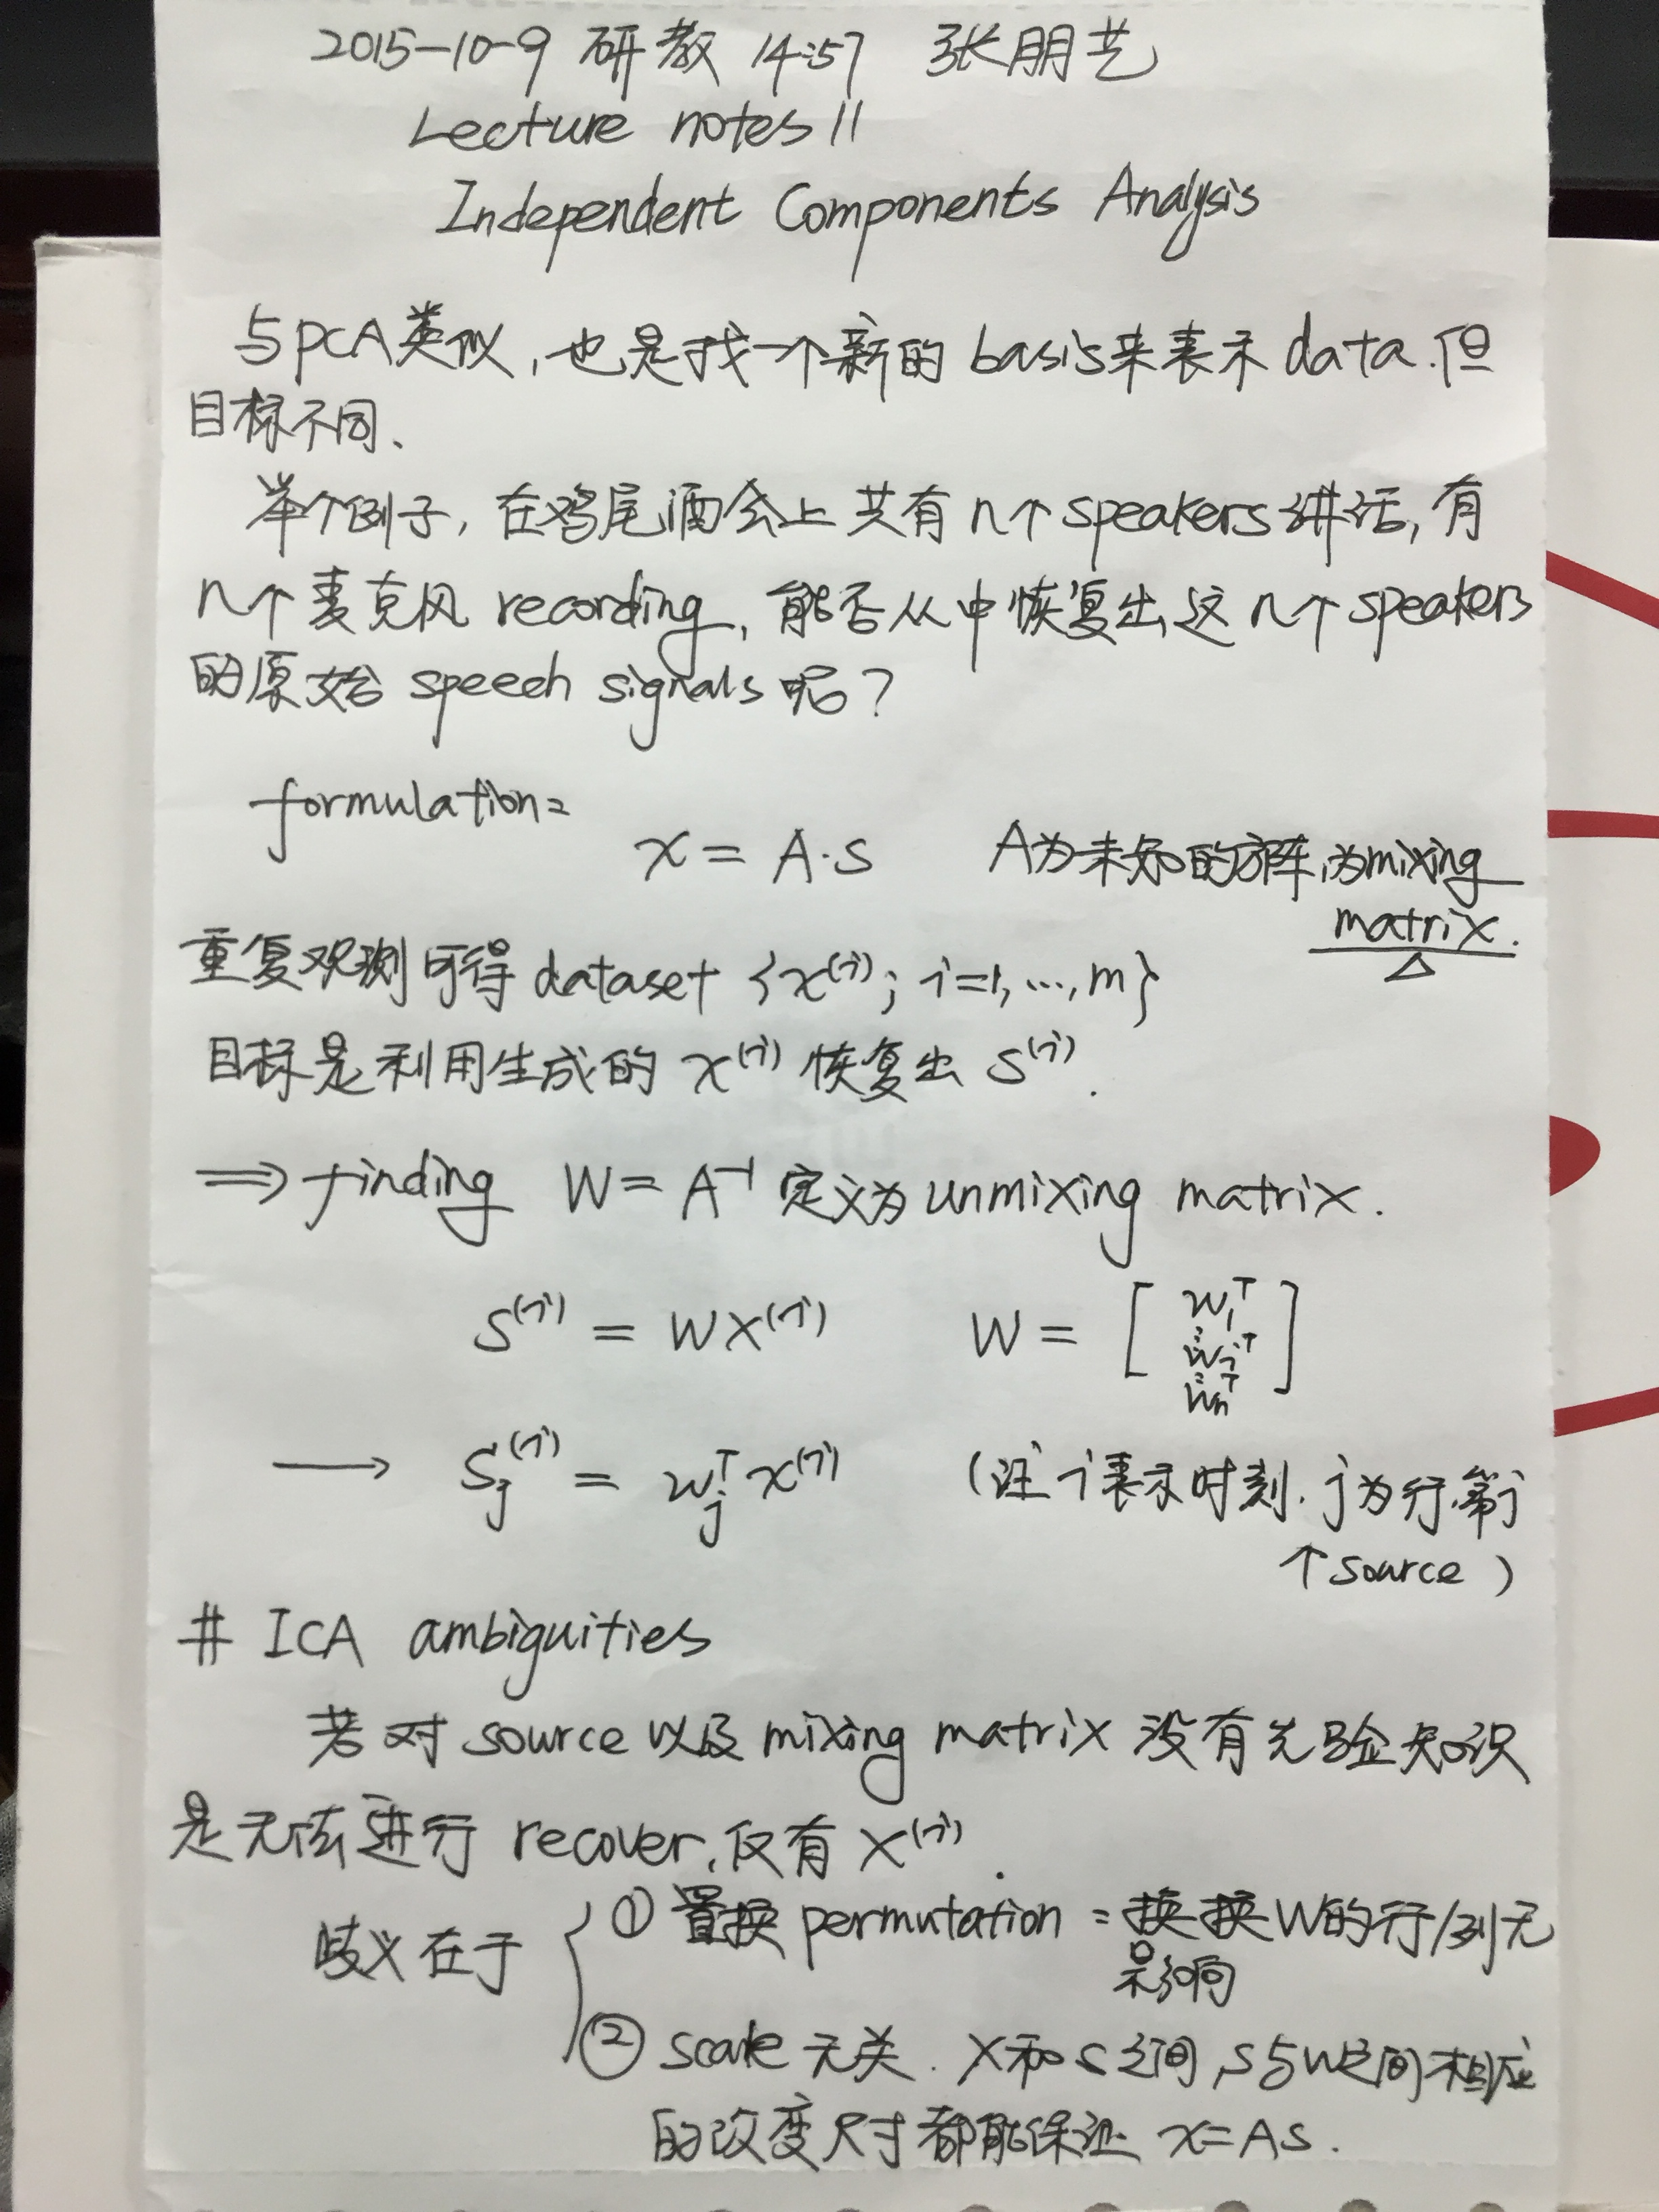 2015-10-9 研教 14:57 张朋艺
Lecture notes 11
Independent Components Analysis
与PCA类似,也是找一个新的basis来表示data.但
目标不同、
举个例子,在鸡尾酒会上共有n个speakers讲话,有
n个麦克风recording,能否从中恢复出这n个speakers
的原始speech signals呢?
formulation:
x = A·s A为未知的方阵,为mixing
matrix.
重复观测可得dataset {x⁽ⁱ⁾; i=1,...,m}
目标是利用生成的x⁽ⁱ⁾恢复出s⁽ⁱ⁾.
⟹ finding W = A⁻¹ 定义为unmixing matrix.
S⁽ⁱ⁾ = WX⁽ⁱ⁾ W = [w₁ᵀ ⋮ wᵢᵀ ⋮ wₙᵀ]
→ Sⱼ⁽ⁱ⁾ = wⱼᵀx⁽ⁱ⁾ (注 i表示时刻.j为行,第j
个source)
# ICA ambiguities
若对source以及mixing matrix没有先验知识
是无法进行recover,仅有X⁽ⁱ⁾.
歧义在于 ① 置换permutation:换换W的行/列无
影响
② scale无关.X和s之间,s与W之间相应
的改变尺寸都能保证x=As.